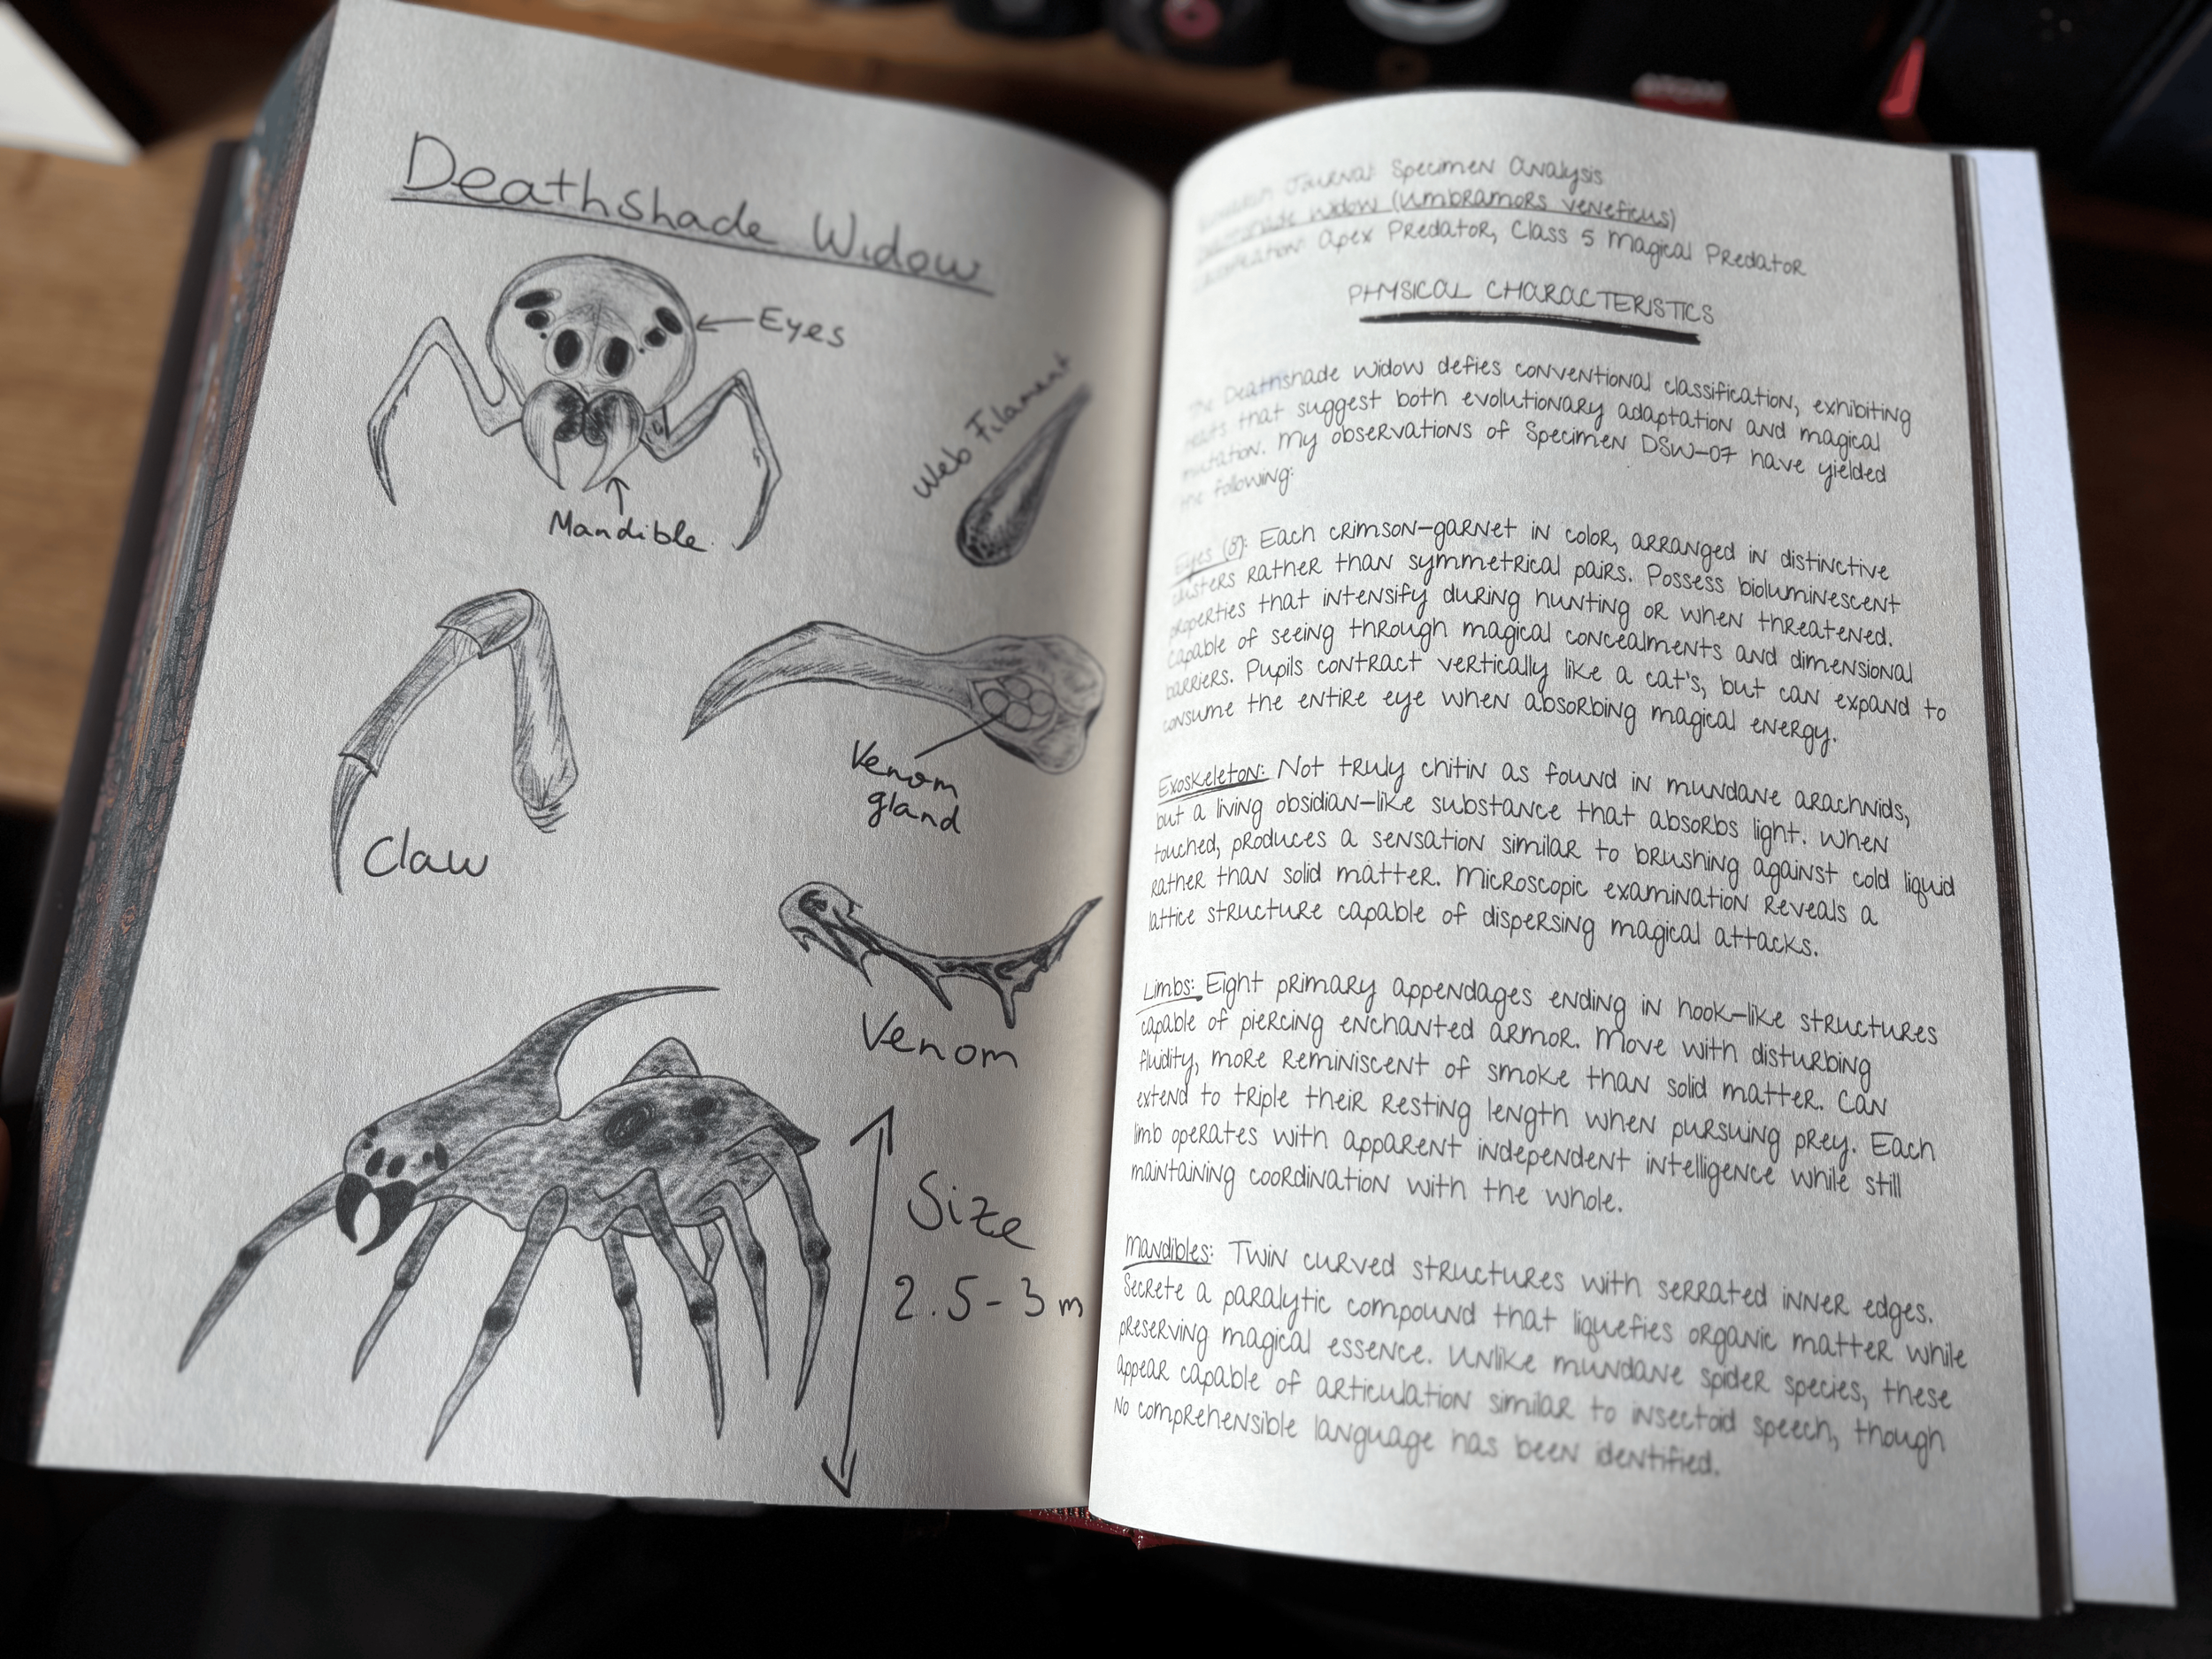 Deathshade Widow
Eyes
Mandible
Web Filament
Claw
Venom
gland
Venom
Size
2.5-3m
Journal: Specimen Analysis
Widow (Umbramors veneficus)
Apex Predator, Class 5 Magical Predator
PHYSICAL CHARACTERISTICS
The Deathshade Widow defies conventional classification, exhibiting
traits that suggest both evolutionary adaptation and magical
mutation. My observations of Specimen DSW-07 have yielded
the following:
Eyes (8): Each crimson-garnet in color, arranged in distinctive
clusters rather than symmetrical pairs. Possess bioluminescent
properties that intensify during hunting or when threatened.
Capable of seeing through magical concealments and dimensional
barriers. Pupils contract vertically like a cat's, but can expand to
consume the entire eye when absorbing magical energy.
Exoskeleton: Not truly chitin as found in mundane arachnids,
but a living obsidian-like substance that absorbs light. When
touched, produces a sensation similar to brushing against cold liquid
rather than solid matter. Microscopic examination reveals a
lattice structure capable of dispersing magical attacks.
Limbs: Eight primary appendages ending in hook-like structures
capable of piercing enchanted armor. Move with disturbing
fluidity, more reminiscent of smoke than solid matter. Can
extend to triple their resting length when pursuing prey. Each
limb operates with apparent independent intelligence while still
maintaining coordination with the whole.
Mandibles: Twin curved structures with serrated inner edges.
Secrete a paralytic compound that liquefies organic matter while
preserving magical essence. Unlike mundane spider species, these
appear capable of articulation similar to insectoid speech, though
no comprehensible language has been identified.